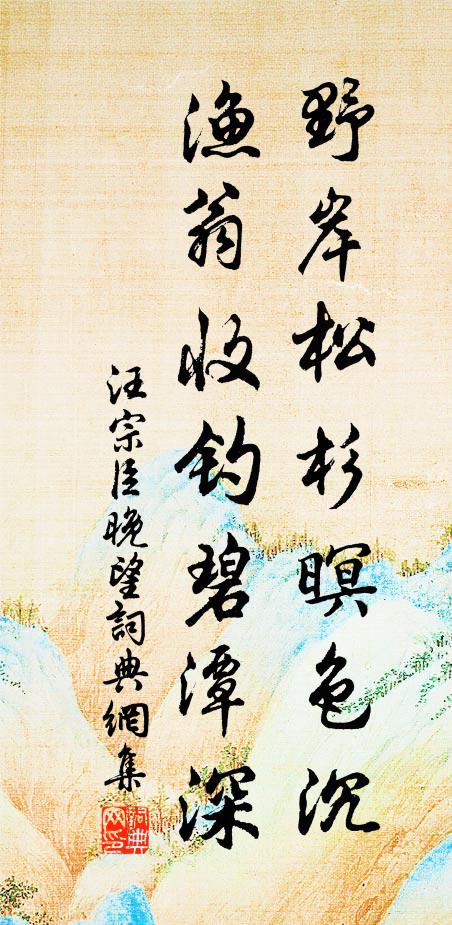 野岸松杉暝色沉
漁翁收釣碧潭深
汪宗臣晚望詞典網集
詞典網印